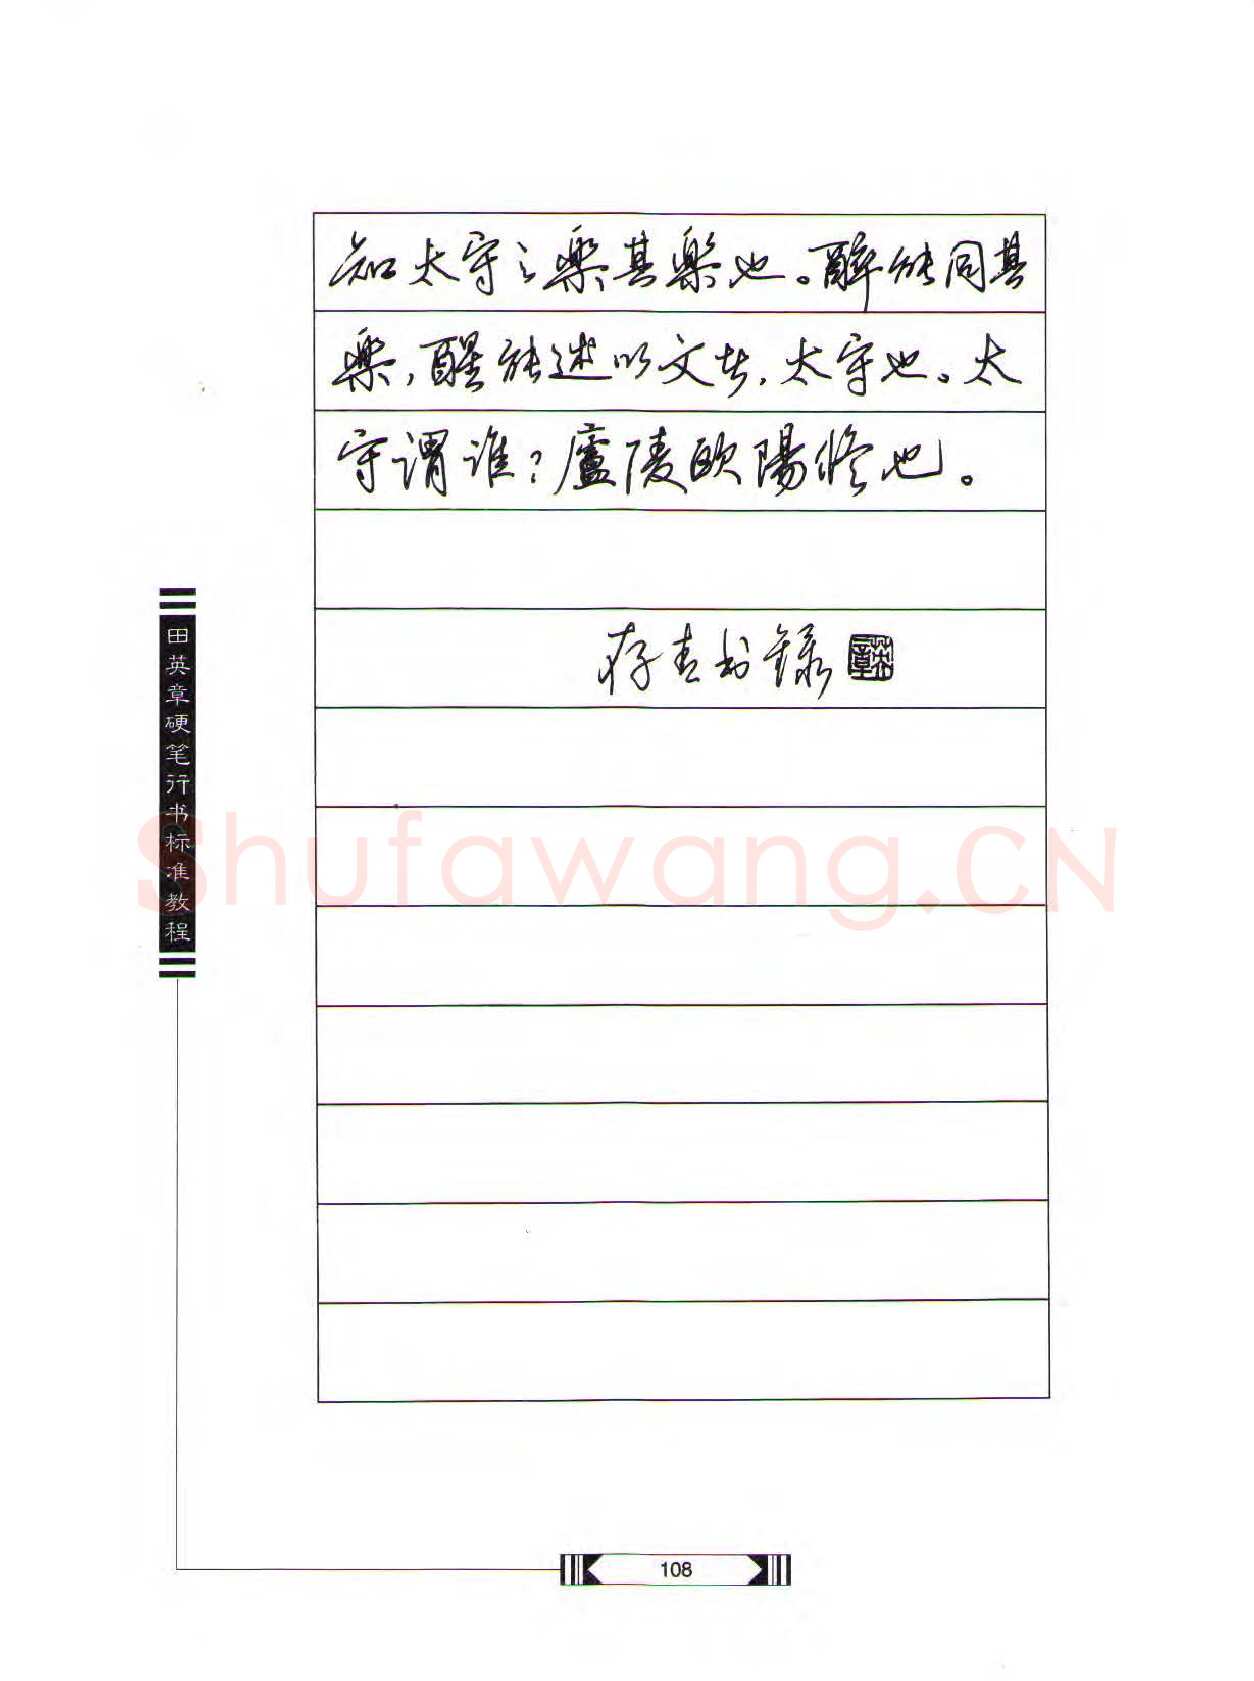 知太守之樂其樂也。醉能同其
樂，醒能述以文者，太守也。太
守谓谁？廬陵欧陽修也。
存青书録
英章
田英章硬笔行书标准教程
Shufawang.CN
108